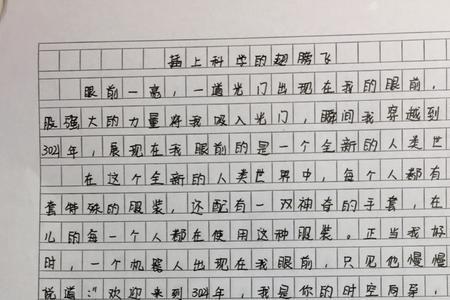 插上科学的翅膀飞
眼前一亮，一道光门出现在我的眼前，
股强大的力量将我吸入光门，瞬间我穿越到
302年，展现在我眼前的是一个全新的人类世
在这个全新的人类世界中，每个人都有
套特殊的服装，还配有一双神奇的手套，在
儿的每一个人都在使用这种服装。正当我好
时，一个机器人出现在我眼前，只见他慢慢
说道："欢迎来到302年，我是你的时空向导，